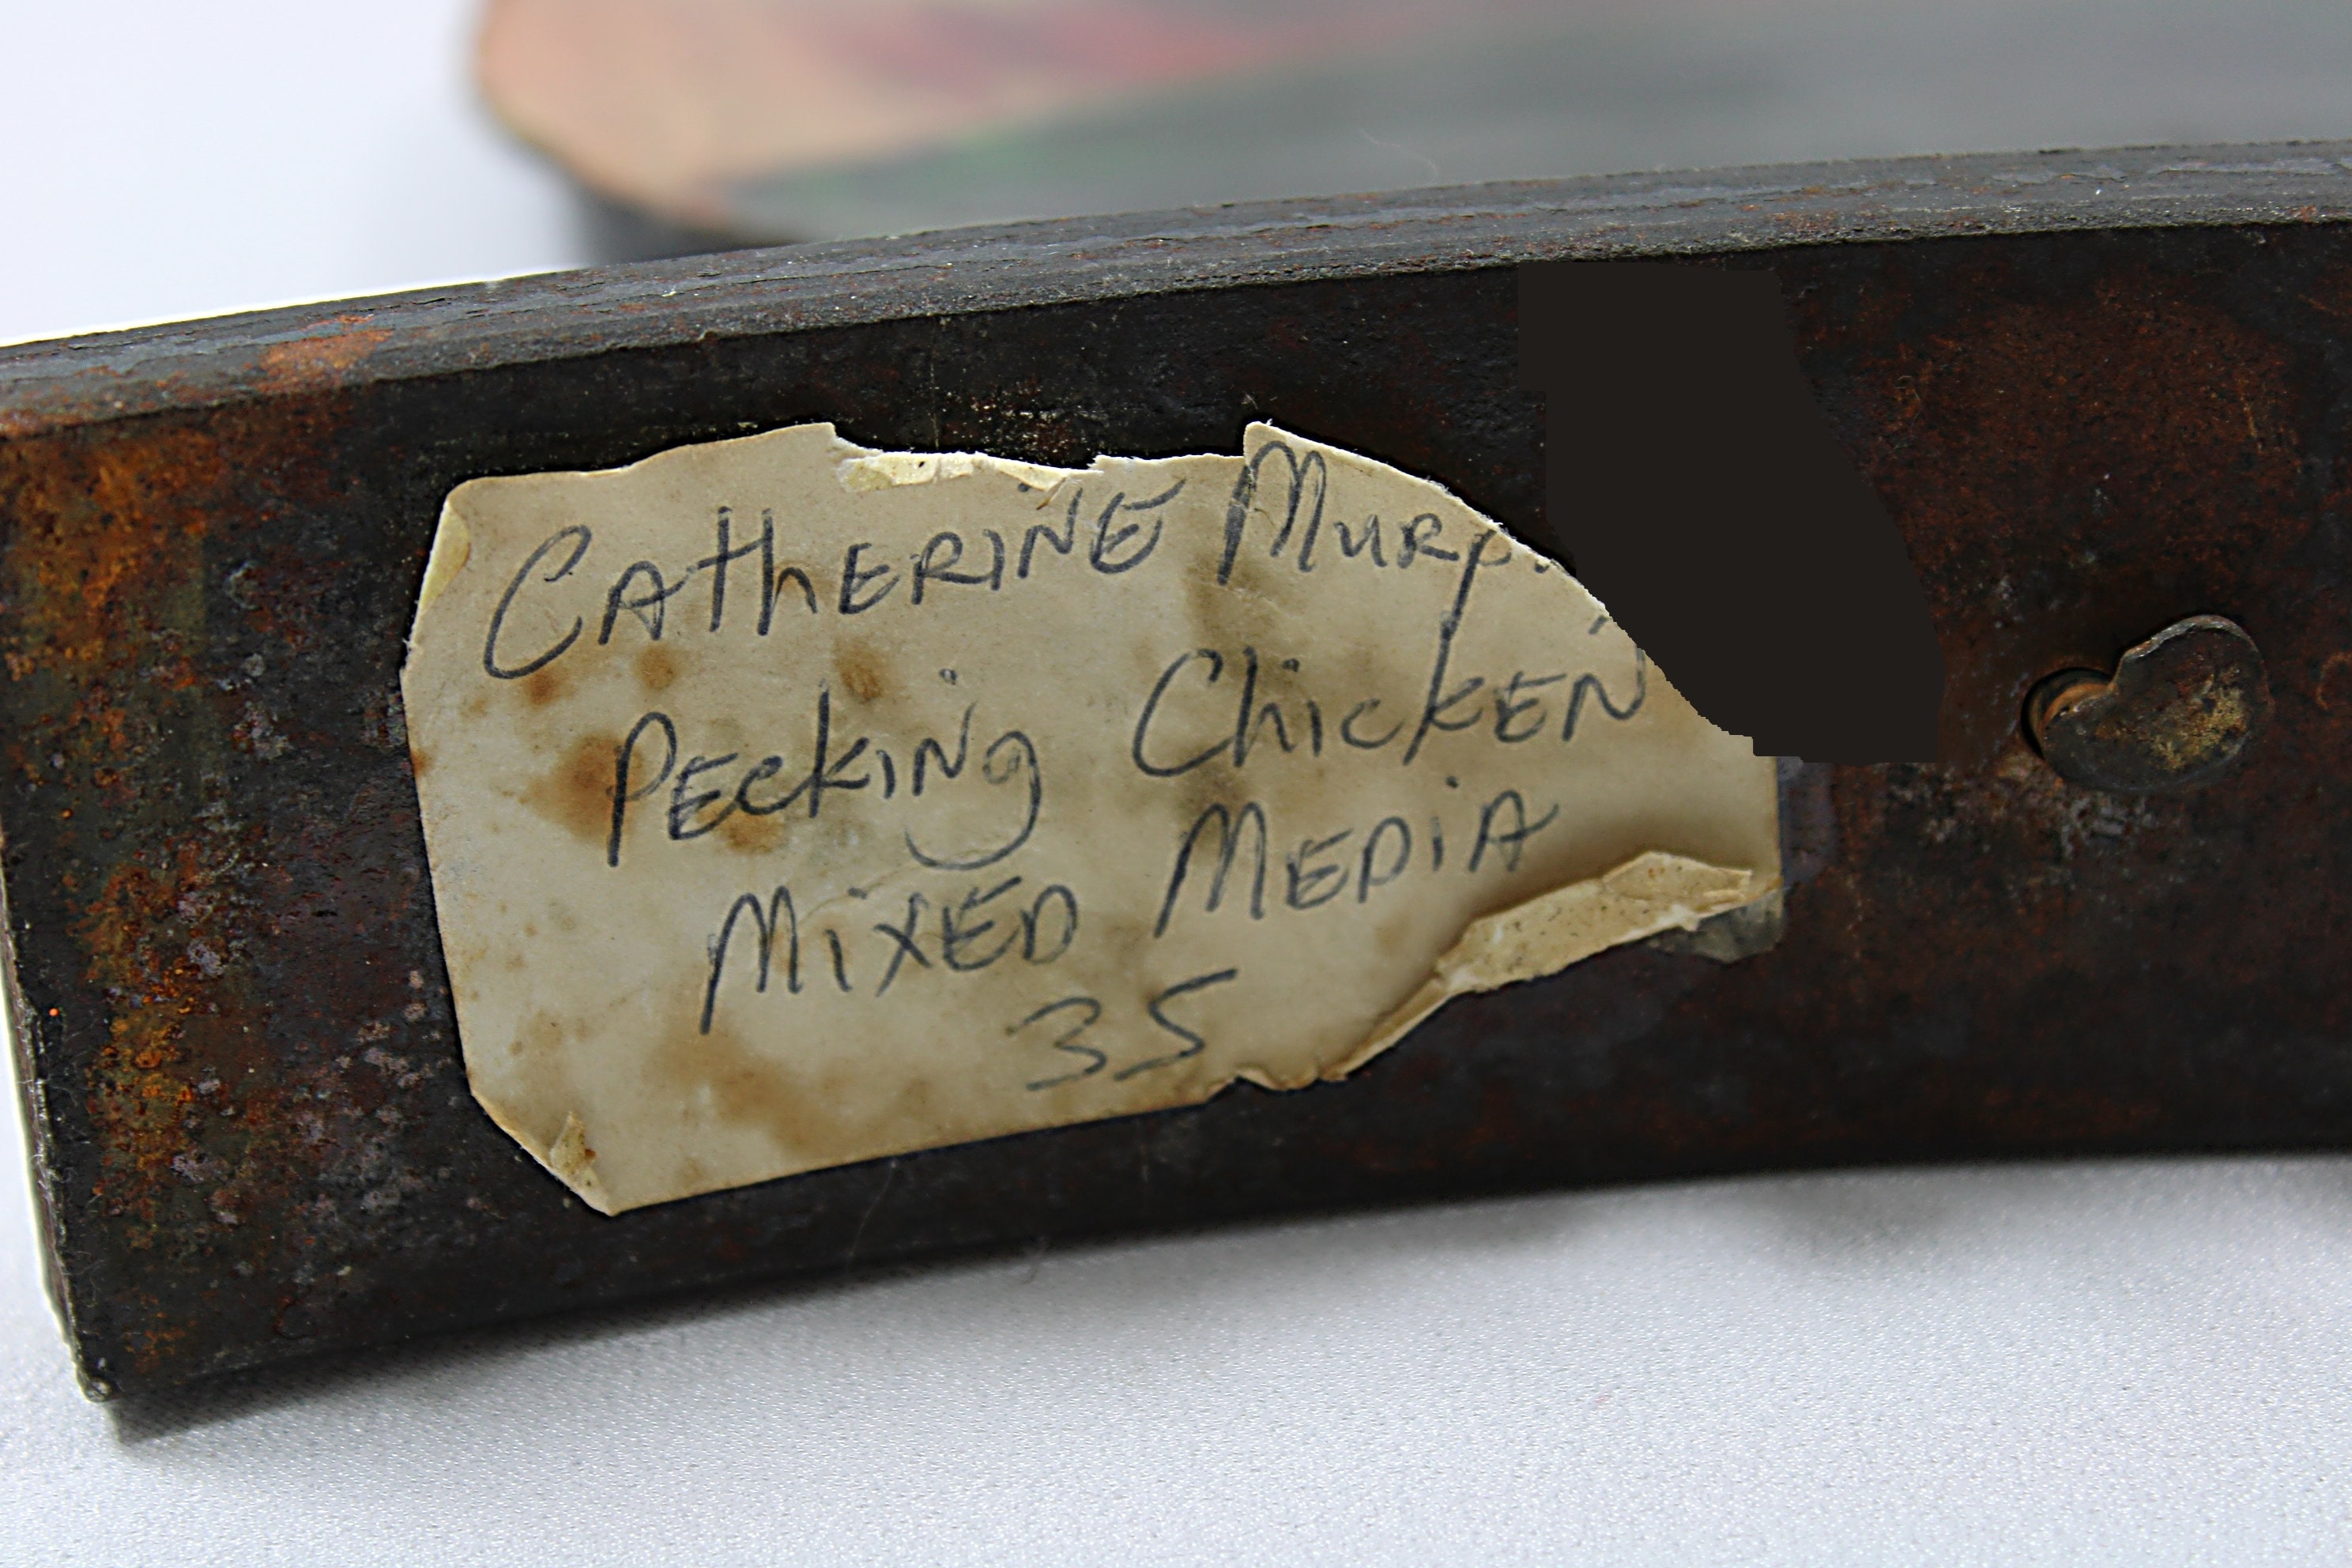 Catherine Murp
Pecking Chicken
Mixed Media
35